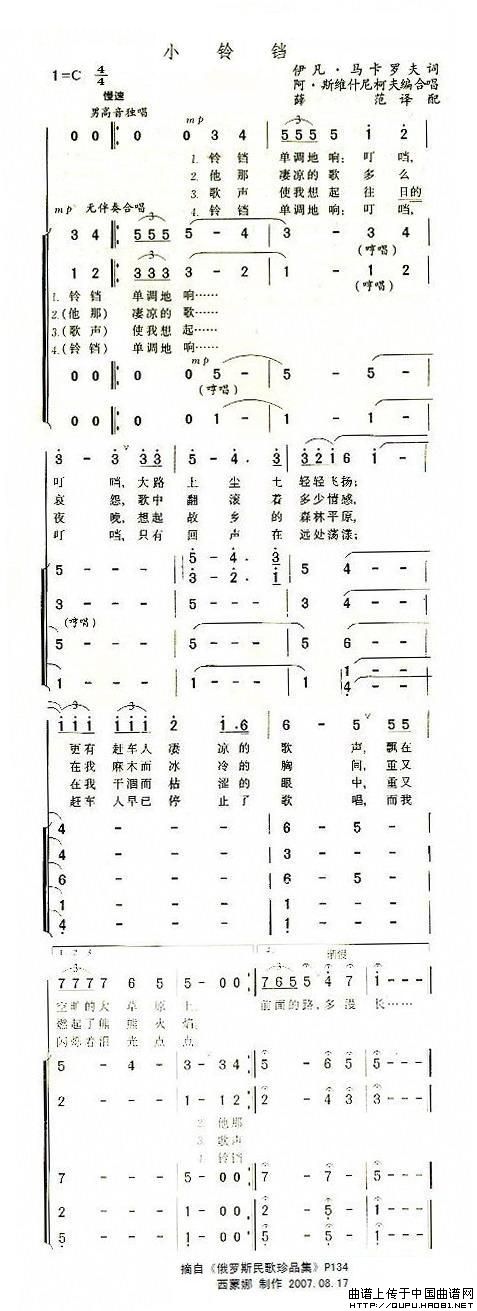 小铃铛
1=C 4/4
伊凡·马卡罗夫词
阿·斯维什尼柯夫编合唱
薛范译配
慢速
男高音独唱
mp
0 0 0 0 3 4 5 5 5 5 i 2
3
1. 铃铛 单调地响；叮当，
2. 他那 凄凉的歌多么
3. 歌声 使我想起往日的
4. 铃铛 单调地响；叮当，
mp 无伴奏合唱
3 4 5 5 5 5 - 4 3 - 3 4
(哼唱)
1 2 3 3 3 3 - 2 1 - 1 2
(哼唱)
1. 铃铛 单调地响……
2.(他那) 凄凉的歌……
3.(歌声) 使我想起……
4.(铃铛) 单调地响……
mp
0 0 0 0 5 - 5 - 5 5 -
(哼唱)
0 0 0 0 1 - 1 - 1 1 -
3 - 3 3 3 5 - 4. 3 3 2 1 6 i -
叮当，大路上尘土轻轻飞扬；
哀怨，歌中翻滚着多少情感，
夜晚，想起故乡的森林平原，
叮当，只有回声在远处荡漾；
5 - - - 5 - 4. 3 5 4 - -
3 - 2. 1
3 - - - 5 - - - 3 1 - -
(哼唱)
5 - - - 5 - - - 5 6 - -
1 - - - 1 - - - 1 1 - -
4 - -
i i i i i i 2 i. 6 6 - 5 5 5
更有赶车人凄凉的歌声，飘在
在我麻木而冰冷的胸间，重又
在我干涸而枯涩的眼中，重又
赶车人早已停止了歌唱，而我
4 - - - 6 - 5 -
4 - - - 3 - - -
6 - - - 6 - 5 -
1 - - - 1 - - -
4 - - -
1 2 3
渐慢
7 7 7 7 6 5 5 - 0 0 7 6 5 5 4 7 1 - - -
空旷的大草原上。 前面的路，多漫长……
燃起了熊熊火焰。
闪烁着泪光点点。
5 - 4 - 3 - 3 4 5 - 6 5 5 - - -
2 - - - 1 - 1 2 2 - 4 3 3 - - -
2. 他那
3. 歌声
4. 铃铛
7 - - - 5 - 0 0 7 - 7 5 - - -
2 - - - 1 - 0 0 2 - 5 1 - - -
5 - - - 1 - 0 0 5 - 5 1 - - -
摘自《俄罗斯民歌珍品集》P134
西蒙娜 制作 2007.08.17
曲谱上传于中国曲谱网
http://QUPU.HAO81.NET